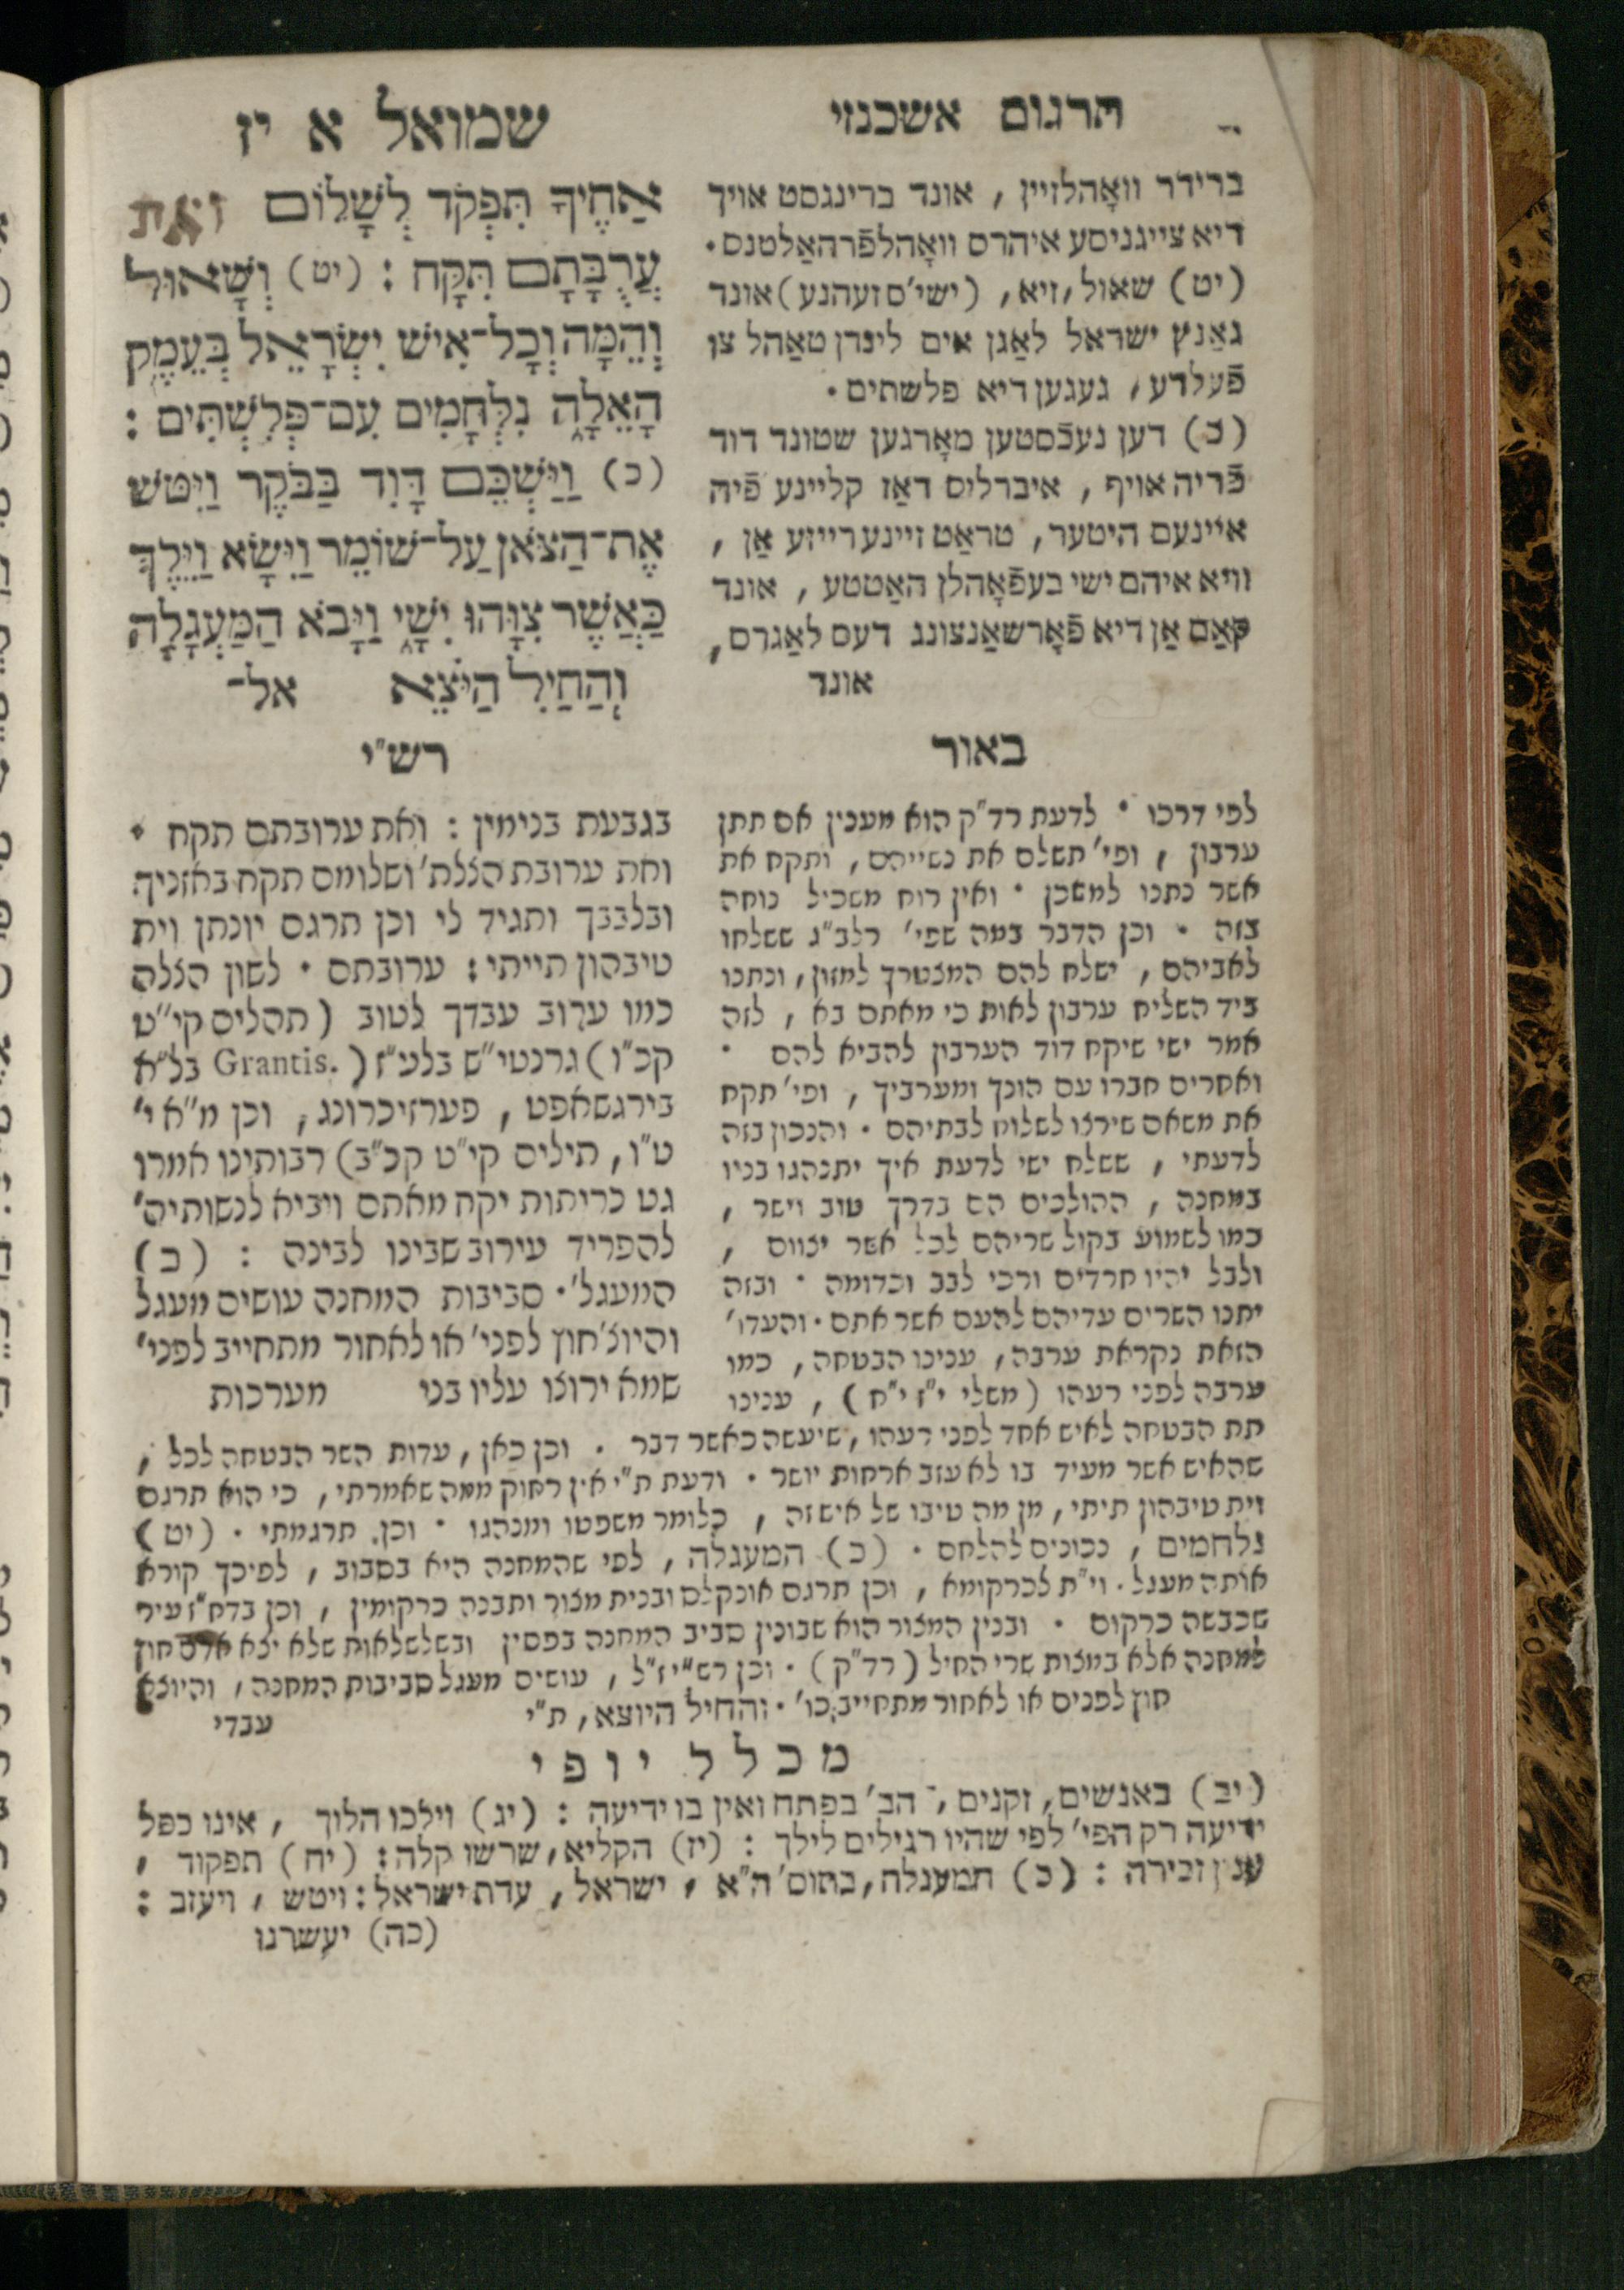 תרגום אשכנזי
ברידר וואָהלזיין, אונד ברינגסט אויך
דיא צייגניסע איהרס וואָהלפֿרהאַלטנס.
(יט) שאול, זיא, (ישי'ס זעהנע) אונד
גאַנץ ישראל לאַגן אים לינדן טאַהל צו
פֿעלדע, געגען דיא פלשתים.
(כ) דען נעכֿסטען מאָרגען שטונד דוד
פֿריה אויף, איברליס דאַז קליינע פֿיה
איינעם היטער, טראַט זיינע רייזע אַן,
וויא איהם ישי בעפֿאָהלן האַטטע, אונד
קאַם אַן דיא פֿאָרשאַנצונג דעס לאַגרס,
אונד
שמואל א יז
אַחֶיךָ תִּפְקֹד לְשָׁלוֹם וְאֶת
עֲרֻבָּתָם תִּקָּח : (יט) וְשָׁאוּל
וְהֵמָּה וְכָל־אִישׁ יִשְׂרָאֵל בְּעֵמֶק
הָאֵלָה נִלְחָמִים עִם־פְּלִשְׁתִּים :
(כ) וַיַּשְׁכֵּם דָּוִד בַּבֹּקֶר וַיִּטֹּשׁ
אֶת־הַצֹּאן עַל־שׁוֹמֵר וַיִּשָּׂא וַיֵּלֶךְ
כַּאֲשֶׁר צִוָּהוּ יִשָׁי וַיָּבֹא הַמַּעְגָּלָה
וְהַחַיִל הַיֹּצֵא אל־
באור
לפי דרכו . לדעת רד"ק הוא מענין אם תתן
ערבון, ופי' תשלם את נשייהם, ותקח את
אשר נתנו למשכן . ואין רוח משכיל נוחה
בזה . וכן הדבר במה שפי' רלב"ג ששלחו
לאביהם, ישלח להם המצטרך למזון, ונתנו
ביד השליח ערבון לאות כי מאתם בא, לזה
אמר ישי שיקח דוד הערבון להביא להם .
ואחרים חברו עם הונך ומערביך, ופי' תקח
את משאם שירצו לשלוח לבתיהם . והנכון בזה
לדעתי, ששלח ישי לדעת איך יתנהגו בניו
במחנה, ההולכים הם בדרך טוב וישר,
כמו לשמוע בקול שריהם לכל אשר יצוום,
ולבל יהיו חרדים ורכי לבב וכדומה . ובזה
יתנו השרים עדיהם להעם אשר אתם . והעדו'
הזאת נקראת ערבה, ענינו הבטחה, כמו
ערבה לפני רעהו (משלי י"ז י"ח), ענינו
רש"י
בגבעת בנימין : ואת ערובתם תקח .
ואת ערובת הצלת' ושלומם תקח באזניך
ובלבבך ותגיד לי וכן תרגם יונתן וית
טיבהון תייתי : ערובתם . לשון הצלה
כמו ערוב עבדך לטוב (תהלים קי"ט
קכ"ו) גרנטי"ש בלע"ז (Grantis. בל"א
בירגשאפט, פערזיכרונג, וכן מ"א י'
ט"ו, תילים קי"ט קכ"ב) רבותינו אמרו
גט כריתות יקח מאתם ויביא לנשותיה'
להפריד עירוב שבינו לבינה : (כ)
המעגל'. סביבות המחנה עושים מעגל
והיוצ' חוץ לפני' או לאחור מתחייב לפני'
שמא ירוצו עליו בני מערכות
תת הבטחה לאיש אחד לפני רעהו, שיעשה כאשר דבר . וכן כאן, עדות השר הבטחה לכל,
שהאיש אשר מעיד בו לא עזב ארחות יושר . ודעת ת"י אין רחוק ממה שאמרתי, כי הוא תרגם
וית טיבהון תיתי, מן מה טיבו של איש זה, כלומר משפטו ומנהגו . וכן תרגמתי . (יט)
נלחמים, נכונים להלחם . (כ) המעגלה, לפי שהמחנה היא בסבוב, לפיכך קורא
אותה מעגל . וי"ת לכרקומא, וכן תרגם אונקלס ובנית מצור ותבנה כרקומין, וכן בדח"ז עיר
שכבשה כרקום . ובנין המצור הוא שבונין סביב המחנה בפסין ובשלשלאות שלא יצא אדם חוץ
למחנה אלא במצות שרי החיל (רד"ק) . וכן רש"י ז"ל, עושים מעגל סביבות המחנה, והיוצא
חוץ לפנים או לאחור מתחייב כו' . והחיל היוצא, ת"י עבדי
מכלל יופי
(יב) באנשים, זקנים, הב' בפתח ואין בו ידיעה : (יג) וילכו הלוך, אינו כפל
ידיעה רק הפי' לפי שהיו רגילים לילך : (יז) הקליא, שרשו קלה : (יח) תפקוד,
ענין זכירה : (כ) המעגלה, בתוס' ה"א, ישראל, עדת ישראל : ויטש, ויעזב :
(כה) יעשרנו